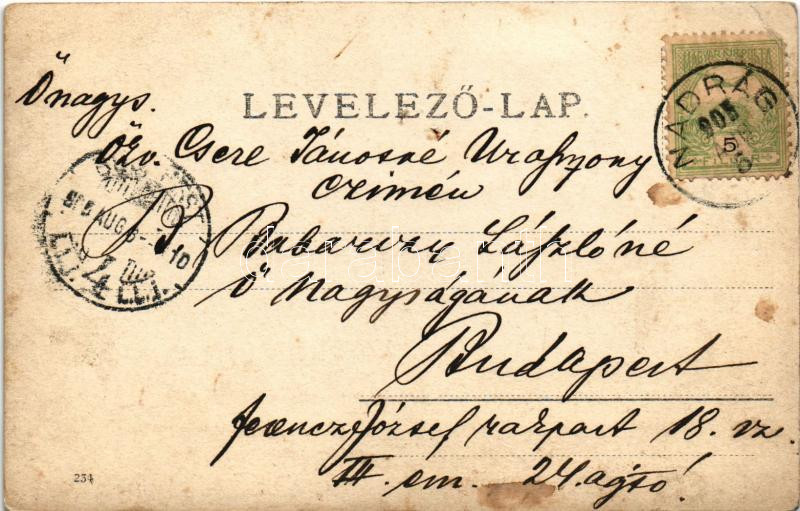 LEVELEZŐ-LAP.
MAGYAR KIR. POSTA
NADRÁG
905
5
Őnagys.
Özv. Csere Jánosné Urasszony
czimén
B. Babarczy Lászlóné
Ő Nagyságának
Budapest
Ferencz József rakpart 18. sz.
III. em. 24. ajtó!
905 AUG 6
10
234
darabanth